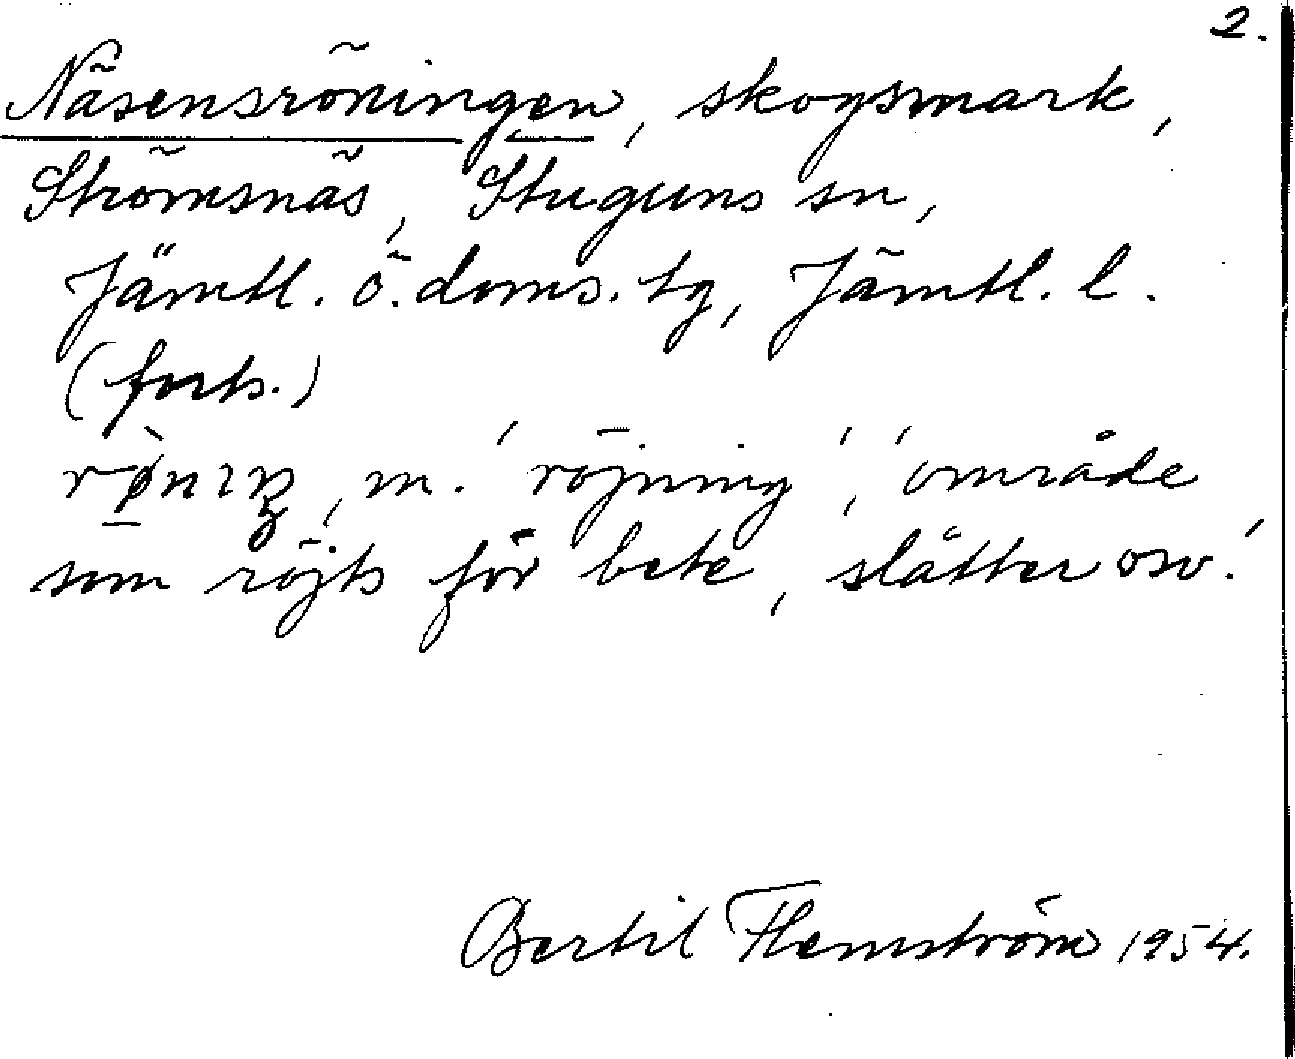 2.
Näsensröningen, skogsmark,
Strömsnäs, Stuguns sn,
Jämtl. ö. doms. tg, Jämtl. l.
(forts.)
m. 'röjning', 'område
som röjts för bete, slåtter osv.'
Bertil Flemström 1954.